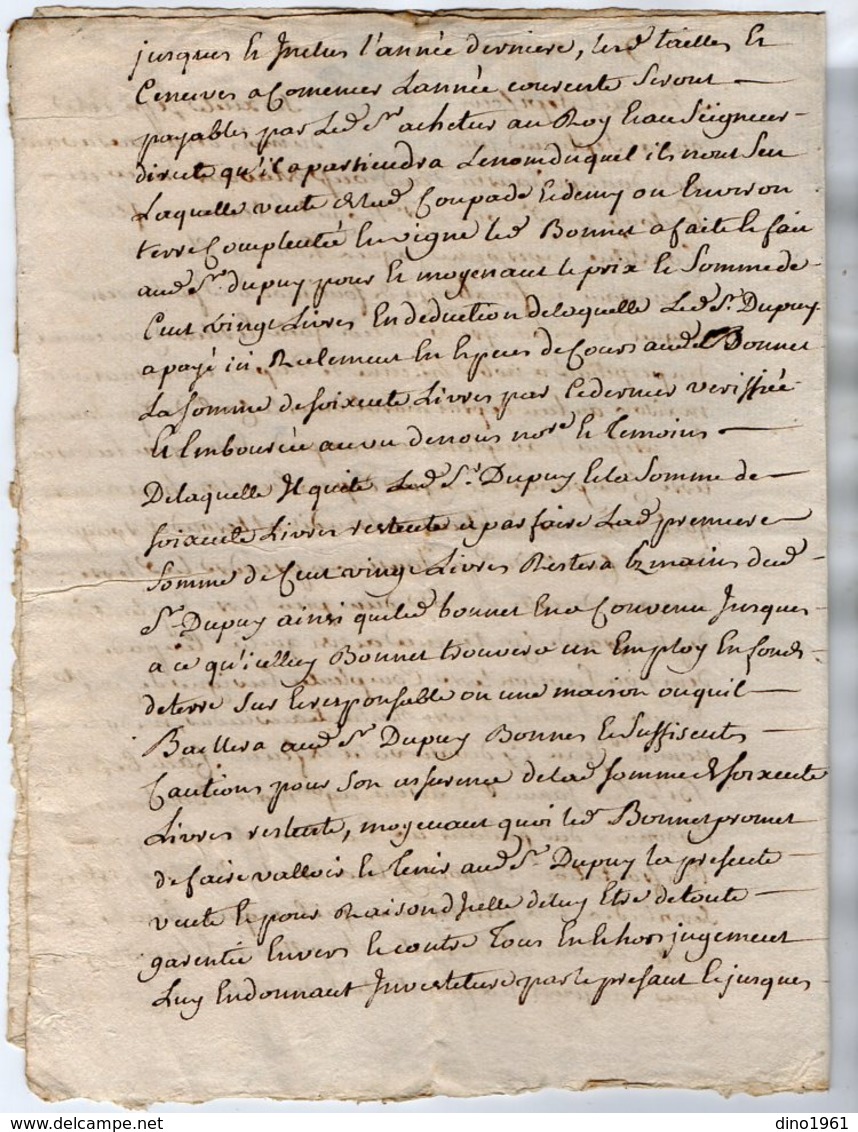 jusques et Inclus l'année derniere, lesd tailles et
Censives a Comencer L'année courente Seront
payables par Led Sr acheteur au Roy et au Seigneur
directe qu'il apartiendra Lenom duquel ils n'ont Seu
Laquelle vente desd Coupade et demy ou Environ
terre Complentée En vigne led Bonnet a faite et fait
aud Sr dupuy pour et moyenant le prix et Somme de
Cent vingt Livres En deduction delaquelle Led Sr. Dupuy
a payé ici Réelement En Especes de Cours aud Bonnet
La somme de soixente Livres par cedernier veriffiée
Et Emboursée au vu de nous nore et temoins
Delaquelle Il quite Led Sr. Dupuy et la Somme de
soixente Livres restente a parfaire Lad premiere
Somme de Cent vingt Livres Restera Ez mains dud
Sr. Dupuy ainsi queled bonnet En a Convenu Jusques
a ce qu'icelluy Bonnet trouvera un Employ En fonds
de terre Sur responsable ou une maison ou quil
Baillera aud Sr Dupuy Bonnes et Suffisentes
Cautions pour Son assurence de lad somme de soixente
Livres restente, moyenant quoi led Bonnet promet
de faire valloir et tenir aud Sr. Dupuy la presente
vente et pour Raison d'Icelle deluy Etre de toute
garentie Envers et contre Tous En et hors jugement
Luy En donnant Investiture par le presant et jusques
dino1961